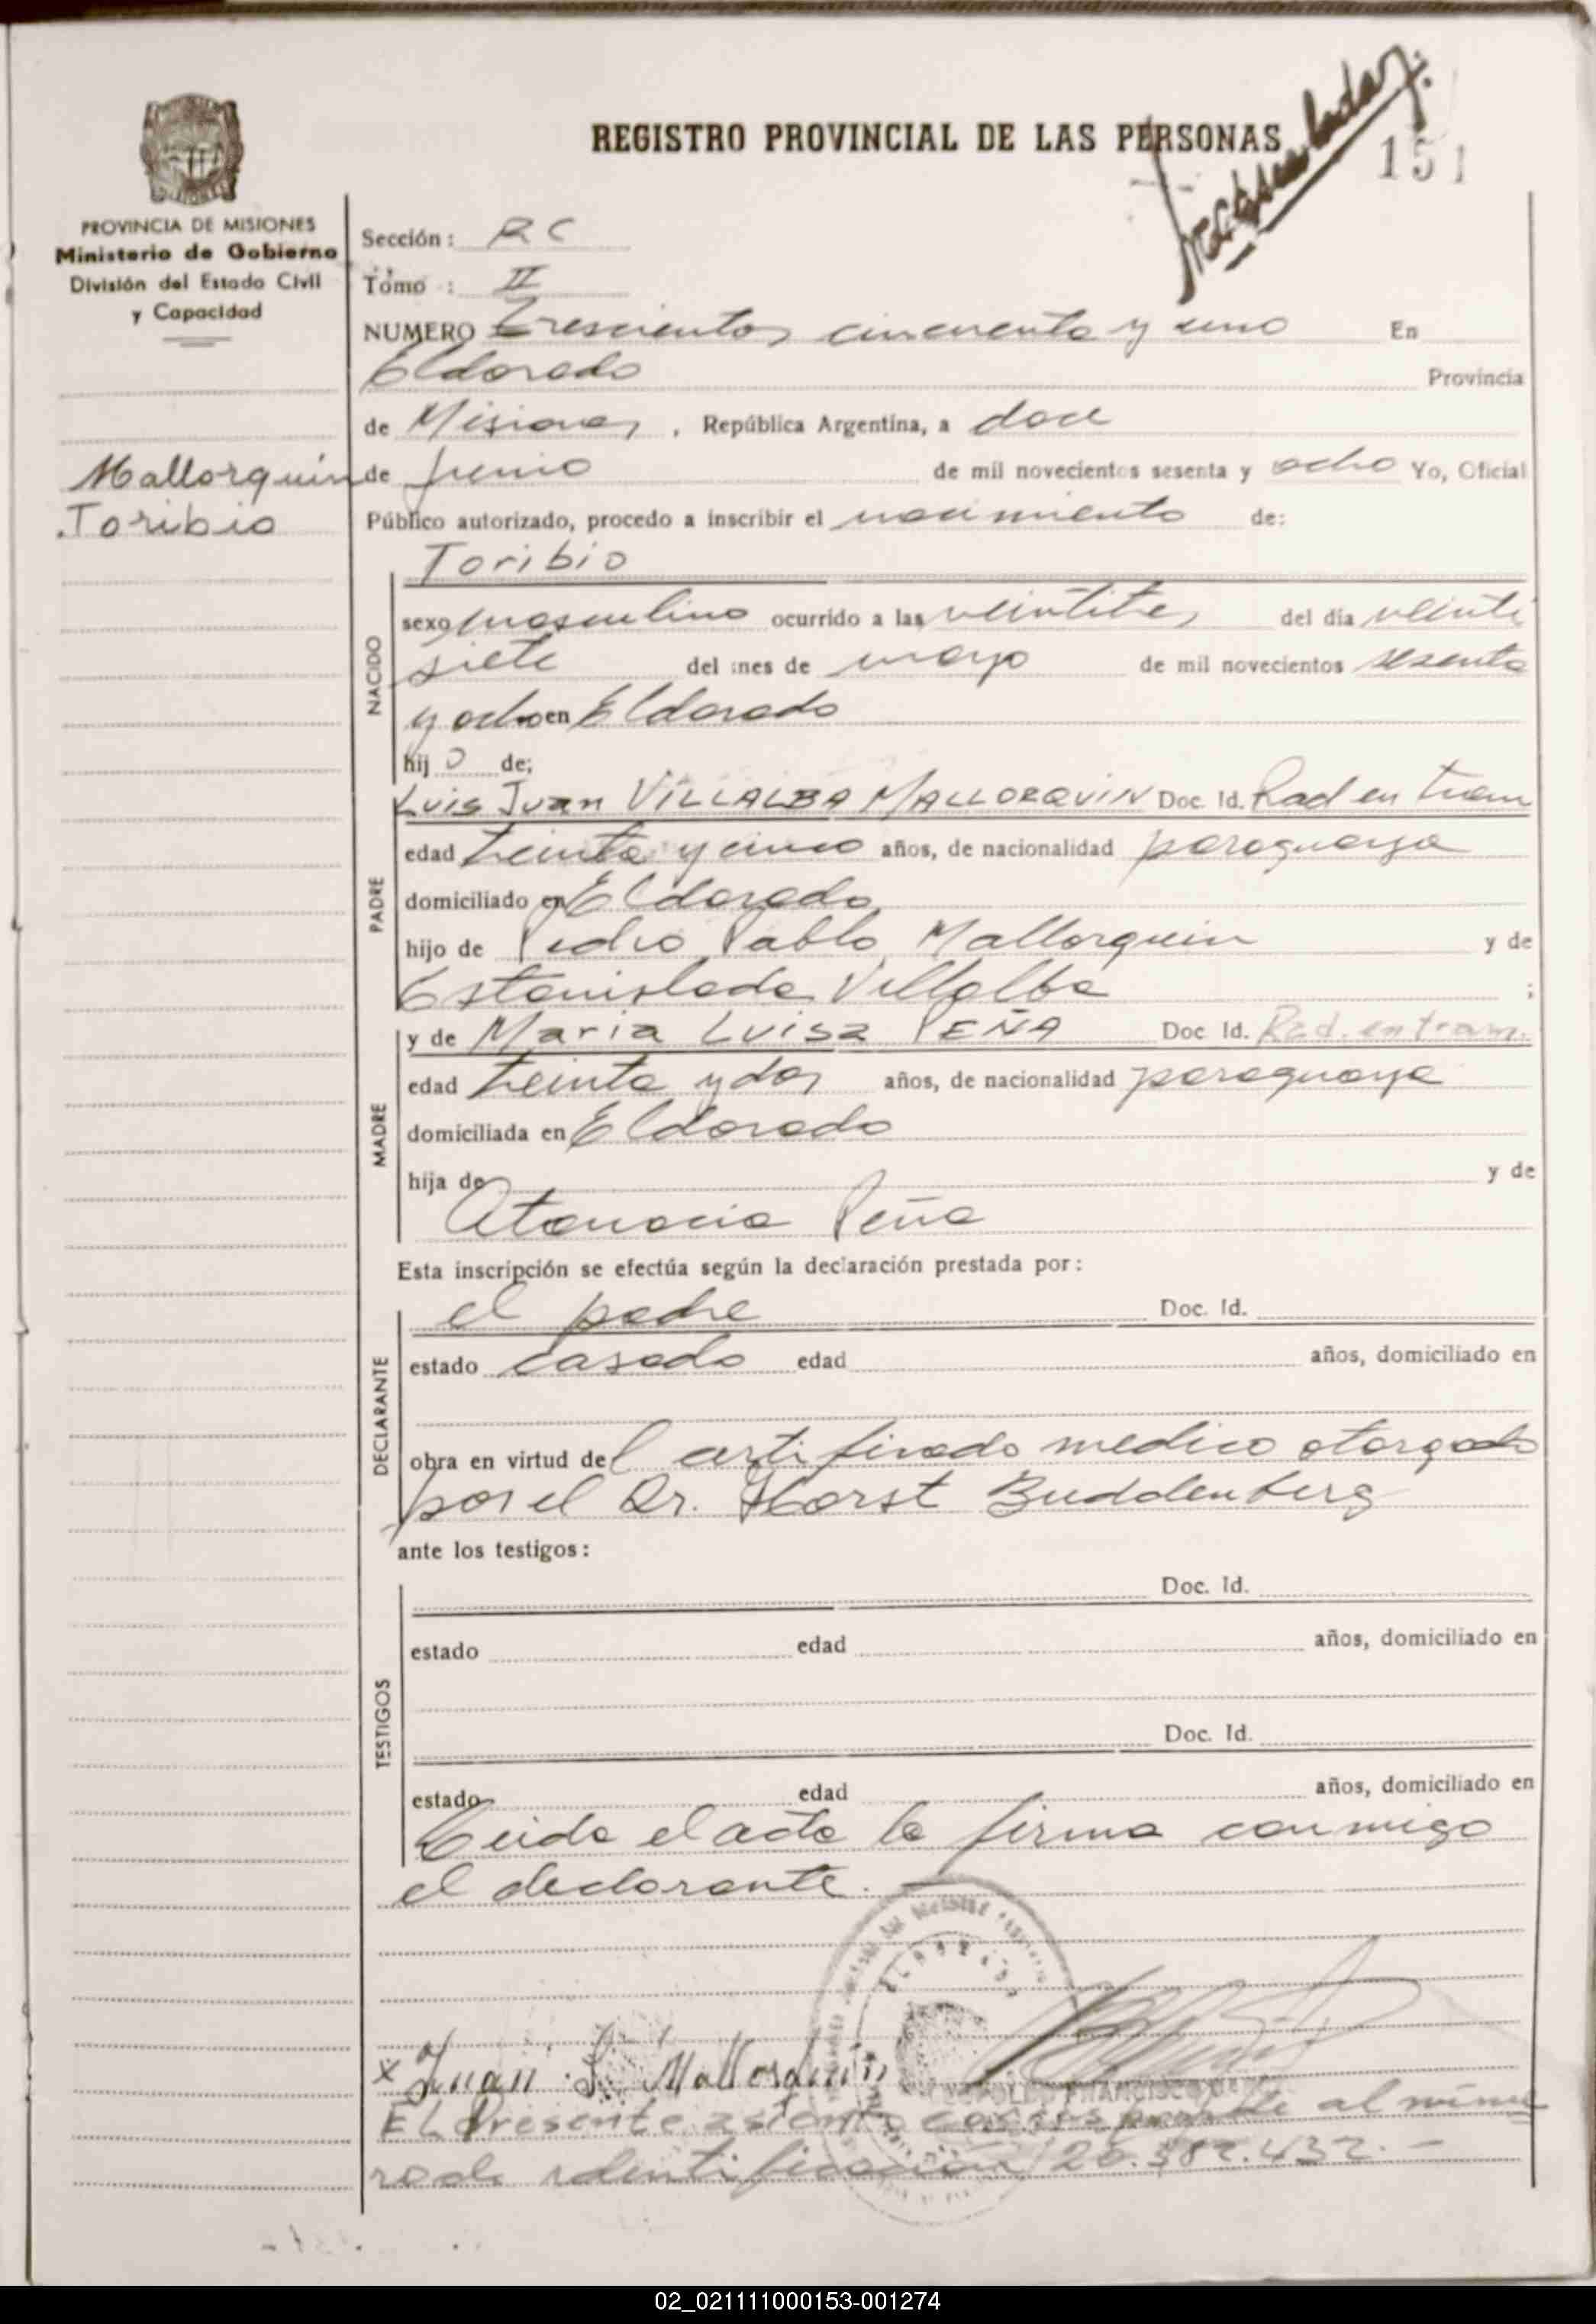 REGISTRO PROVINCIAL DE LAS PERSONAS
151
PROVINCIA DE MISIONES
Ministerio de Gobierno
División del Estado Civil
y Capacidad
Mallorquin
Toribio
Sección: RC
Tomo : II
NUMERO Trescientos cincuenta y uno En
Eldorado Provincia
de Misiones, República Argentina, a doce
de junio de mil novecientos sesenta y ocho Yo, Oficial
Público autorizado, procedo a inscribir el nacimiento de:
Toribio
NACIDO
sexo masculino ocurrido a las veintitres del día veinti
siete del mes de mayo de mil novecientos sesenta
y ocho en Eldorado
hijo de;
PADRE
Luis Juan VILLALBA MALLORQUIN Doc Id. Rad en tram
edad treinta y cinco años, de nacionalidad paraguaya
domiciliado en Eldorado
hijo de Pedro Pablo Mallorquin y de
Estanislada Villalba ;
MADRE
y de Maria Luisa PEÑA Doc Id. Rad. en tram.
edad treinta y dos años, de nacionalidad paraguaya
domiciliada en Eldorado
hija de y de
Atanacia Peña
Esta inscripción se efectúa según la declaración prestada por:
DECLARANTE
el padre Doc. Id.
estado casado edad años, domiciliado en
obra en virtud del certificado medico otorgado
por el Dr. Horst Buddenberg
ante los testigos:
TESTIGOS
Doc. Id.
estado edad años, domiciliado en
Doc. Id.
estado edad años, domiciliado en
Leida el acta la firma conmigo
el declarante.
x Juan L. Mallorquin
El Presente asiento corresponde al nume
ro de identificación 20.382.432.-
02_021111000153-001274